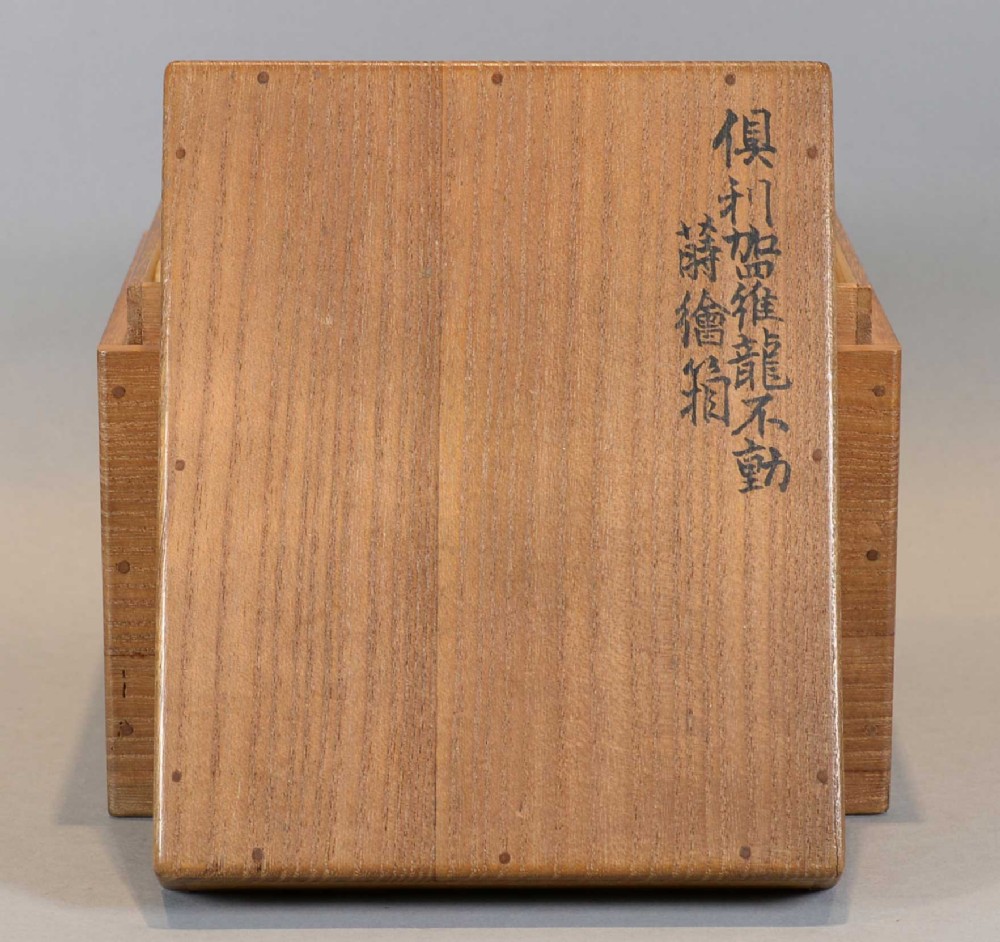 倶利加羅龍不動
蒔繪箱